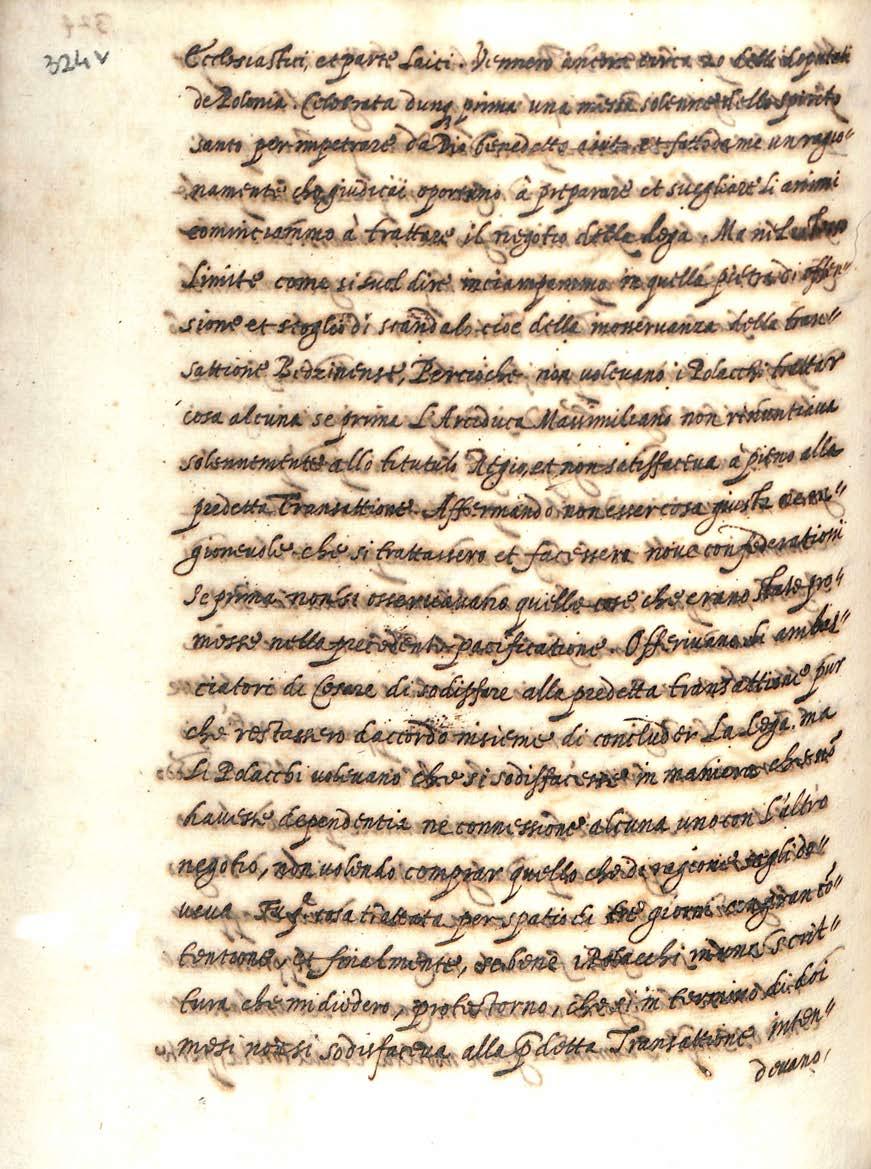 324v
Ecclesiastici, et parte Laici. Vennero ancora circa 20 delli deputati
de Polonia. Celebrata dunq prima una messa solenne dello spirito
santo per impetrare da Dio benedetto aiuto et fatto da me un ragio"
namento che giudicai oportuno à preparare et suegliare li animi
cominciammo à trattare il negotio della lega. Ma nel
Limite come si suol dire inciampammo in quella pietra di offen"
sione et scoglio di scandalo cioe della inosservanza della tran"
sattione Bedzinense, Percioche non volevano i Polacchi trattar
cosa alcuna se prima L'Arciduca Massimiliano non renuntiava
solennemente allo titutulo Regio, et non satisfaceva à pieno alla
predetta Transattione. Affermando non esser cosa giusta ne ra"
gionevole che si trattassero et facessero nove confederationi
se prima non si osservavano quelle cose che erano state pro"
messe nella precedente pacificatione. Offerivano li ambas"
ciatori di Cesare di sodisfare alla predetta transattione pur
che restassero daccordo insieme di concluder La Lega. ma
Li Polacchi volevano che si sodisfacesse in maniera che nõ
havesse dependentia ne connessione alcuna uno con L'altro
negotio, non volendo comprar quello che di ragione segli do"
veva. Fu q. cosa trattata per spatio di tre giorni con gran cõ"
tentione, et finalmente, se bene i Polacchi in una scrit"
tura che mi diedero, protestorno, che si in termino di doi
mesi non si sodisfaceva alla p̃detta Transattione inten"
devano,